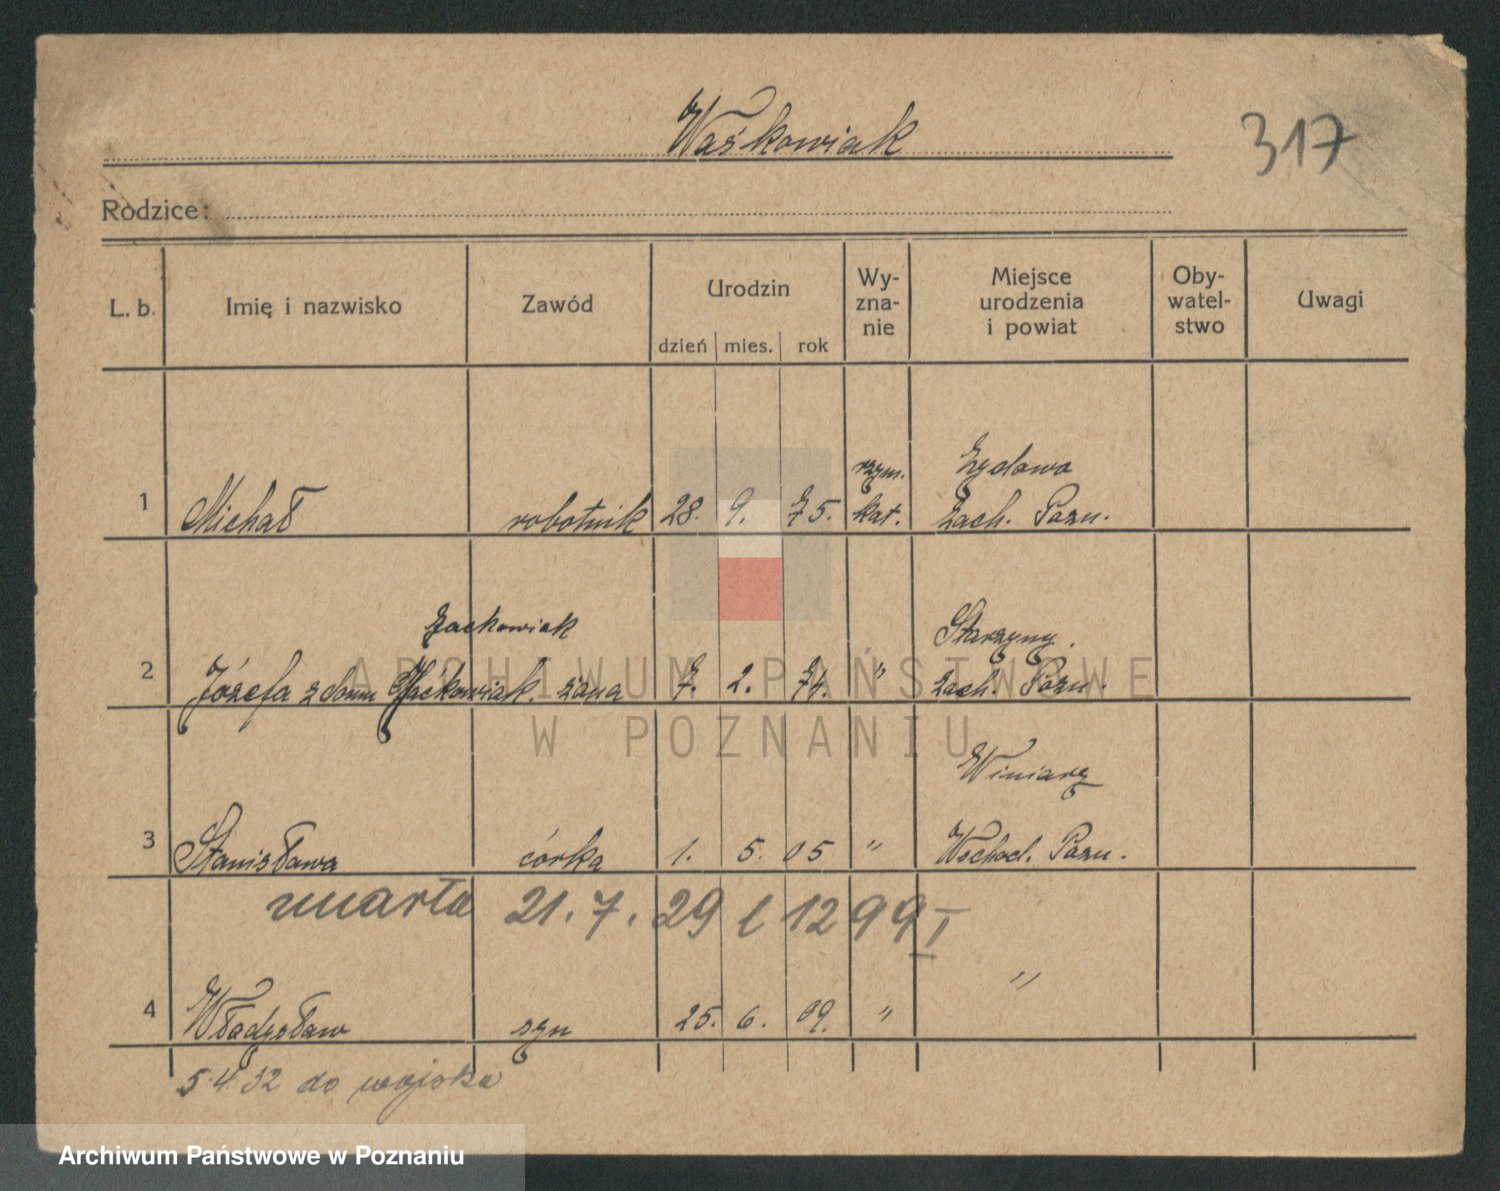 Waśkowiak
317
Rodzice:
L. b. Imię i nazwisko Zawód Urodzin dzień mies. rok Wy-zna-nie Miejsce urodzenia i powiat Oby-watel-stwo Uwagi
rzym. Żydowo
1 Michał robotnik 28. 9. 75. kat. Zach. Pozn.
Żackowiak Starzyny.
2 Józefa z domu Żackowiak. żona 7. 2. 74. " Zach. Pozn.
Winiary
3 Stanisława córka 1. 5. 05 " Wschod. Pozn.
umarła 21. 7. 29 l 1299 I
4 Władysław syn 25. 6. 09. " "
5.4.32 do wojska
ARCHIWUM PAŃSTWOWE
W POZNANIU
Archiwum Państwowe w Poznaniu